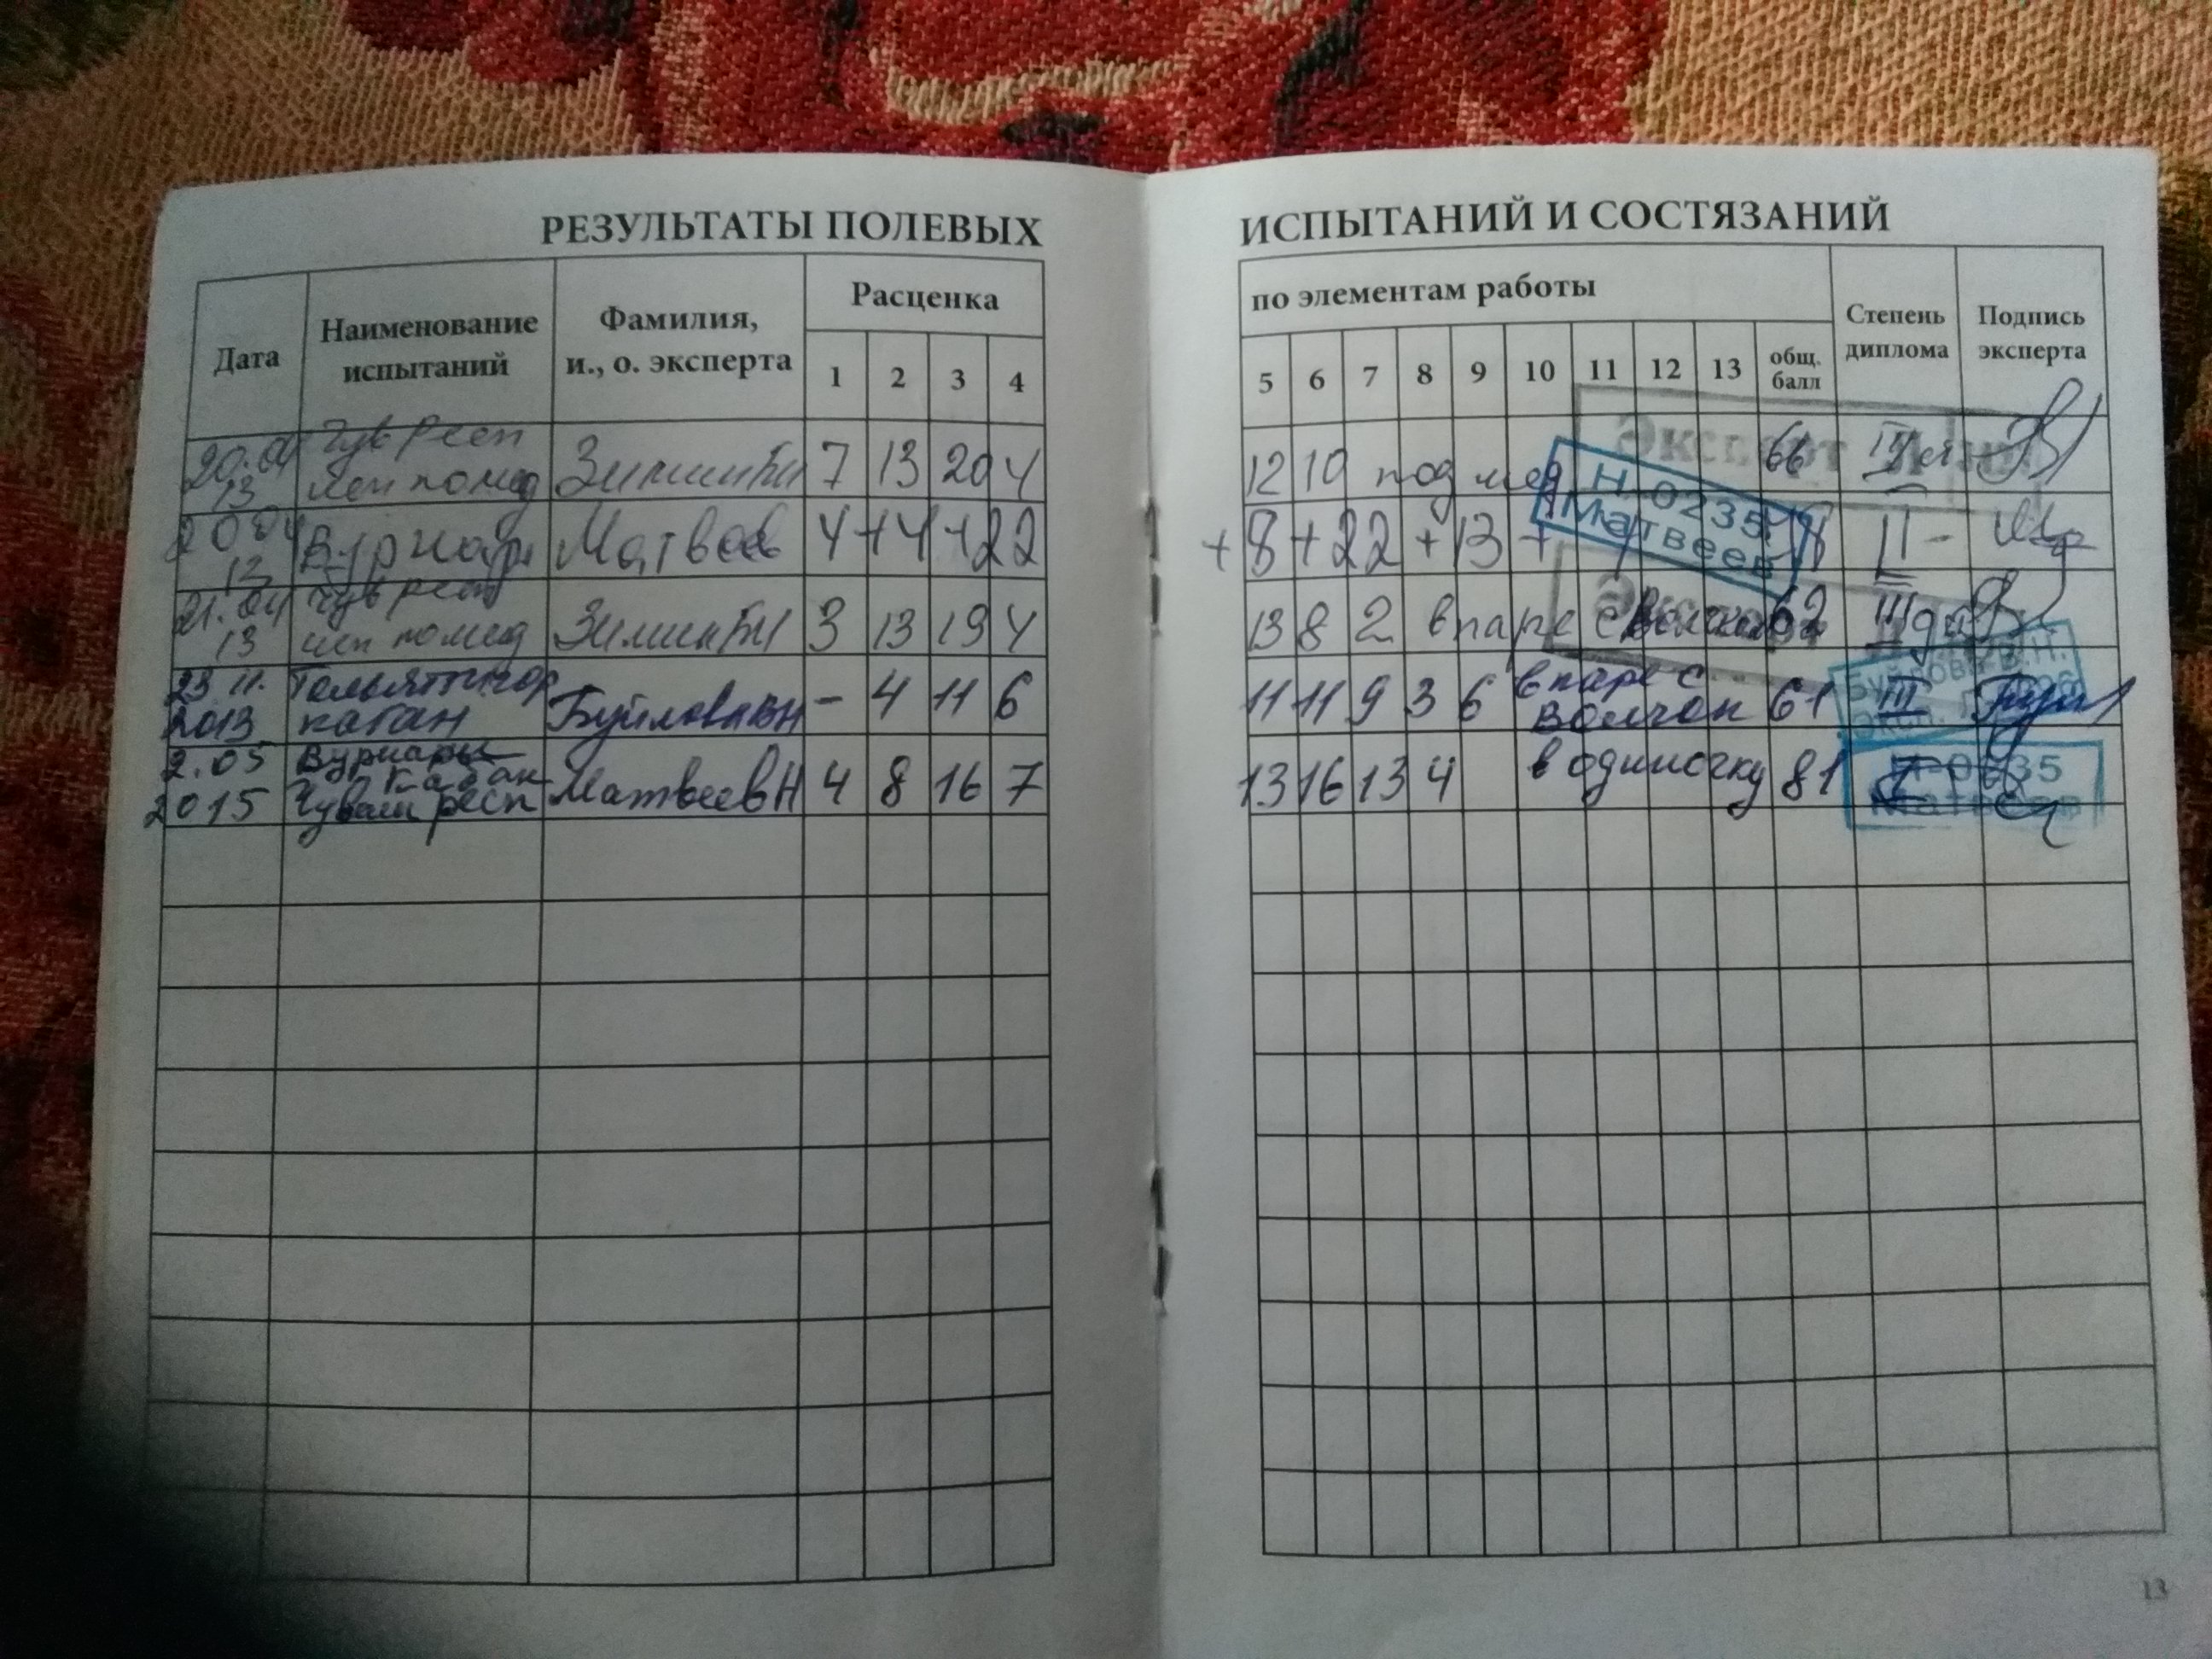 РЕЗУЛЬТАТЫ ПОЛЕВЫХ ИСПЫТАНИЙ И СОСТЯЗАНИЙ
Дата Наименование испытаний Фамилия, и., о. эксперта Расценка по элементам работы Степень диплома Подпись эксперта
1 2 3 4 5 6 7 8 9 10 11 12 13 общ. балл
Чув респ
20.04 13 Зимин 7 13 20 4 12 10 под мед 66 III
Эксперт
20 04 13 Вурнары Матвеев 4+4+22 +8+22+13+ 78 II-
Н-0235
Матвеев
Чув респ
21.04 13 Зимин 3 13 19 4 13 8 2 в паре с 62 III
23 11. 2013 кабан Буйлова ВН - 4 11 6 11 11 9 3 6 в паре с Волчок 61 III
Буйлова В.Н.
2.05 2015 Вурнары Кабан Чуваш респ Матвеев Н 4 8 16 7 13 16 13 4 в одиночку 81
Н-0235
Матвеев
13